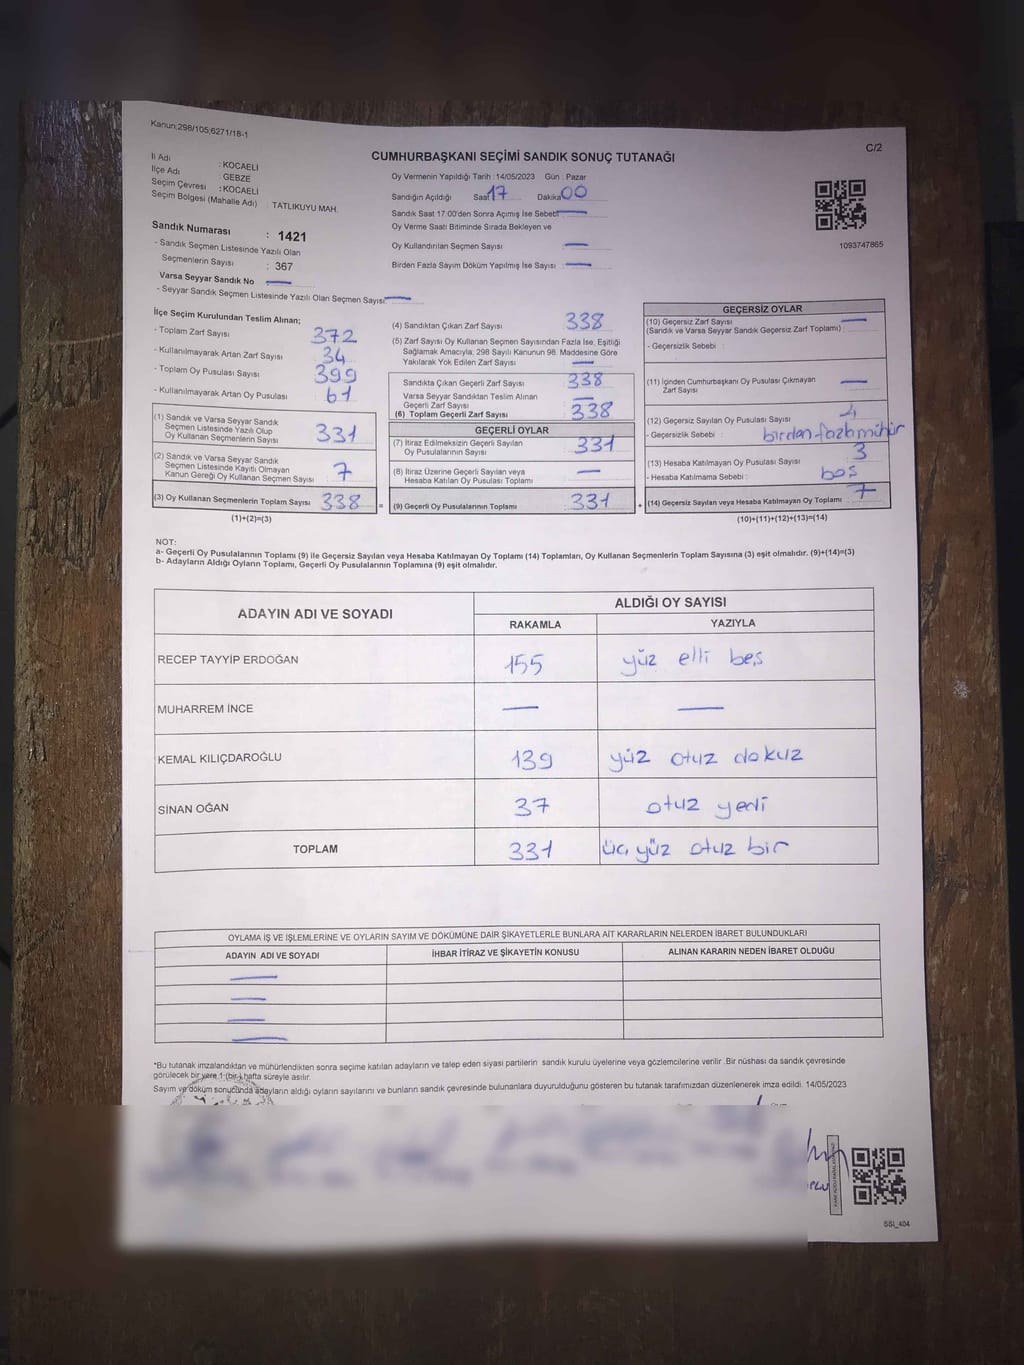 Kanun:298/105;6271/18-1
C/2
CUMHURBAŞKANI SEÇİMİ SANDIK SONUÇ TUTANAĞI
İl Adı : KOCAELİ
İlçe Adı : GEBZE
Seçim Çevresi : KOCAELİ
Seçim Bölgesi (Mahalle Adı) : TATLIKUYU MAH.
Sandık Numarası : 1421
- Sandık Seçmen Listesinde Yazılı Olan
Seçmenlerin Sayısı : 367
Varsa Seyyar Sandık No —
- Seyyar Sandık Seçmen Listesinde Yazılı Olan Seçmen Sayısı: —
Oy Vermenin Yapıldığı Tarih : 14/05/2023 Gün : Pazar
Sandığın Açıldığı Saat 17 Dakika 00
Sandık Saat 17:00'den Sonra Açımış İse Sebebi —
Oy Verme Saati Bitiminde Sırada Bekleyen ve
Oy Kullandırılan Seçmen Sayısı —
Birden Fazla Sayım Döküm Yapılmış İse Sayısı : —
1093747865
İlçe Seçim Kurulundan Teslim Alınan;
- Toplam Zarf Sayısı 372
- Kullanılmayarak Artan Zarf Sayısı 34
- Toplam Oy Pusulası Sayısı 399
- Kullanılmayarak Artan Oy Pusulası 61
(1) Sandık ve Varsa Seyyar Sandık
Seçmen Listesinde Yazılı Olup
Oy Kullanan Seçmenlerin Sayısı 331
(2) Sandık ve Varsa Seyyar Sandık
Seçmen Listesinde Kayıtlı Olmayan
Kanun Gereği Oy Kullanan Seçmen Sayısı : 7
(3) Oy Kullanan Seçmenlerin Toplam Sayısı 338
(1)+(2)=(3)
(4) Sandıktan Çıkan Zarf Sayısı 338
(5) Zarf Sayısı Oy Kullanan Seçmen Sayısından Fazla İse, Eşitliği
Sağlamak Amacıyla; 298 Sayılı Kanunun 98. Maddesine Göre
Yakılarak Yok Edilen Zarf Sayısı —
Sandıkta Çıkan Geçerli Zarf Sayısı 338
Varsa Seyyar Sandıktan Teslim Alınan
Geçerli Zarf Sayısı —
(6) Toplam Geçerli Zarf Sayısı 338
GEÇERLİ OYLAR
(7) İtiraz Edilmeksizin Geçerli Sayılan
Oy Pusulalarının Sayısı 331
(8) İtiraz Üzerine Geçerli Sayılan veya
Hesaba Katılan Oy Pusulası Toplamı —
= (9) Geçerli Oy Pusulalarının Toplamı 331
GEÇERSİZ OYLAR
(10) Geçersiz Zarf Sayısı —
(Sandık ve Varsa Seyyar Sandık Geçersiz Zarf Toplamı) :
- Geçersizlik Sebebi :
(11) İçinden Cumhurbaşkanı Oy Pusulası Çıkmayan
Zarf Sayısı —
(12) Geçersiz Sayılan Oy Pusulası Sayısı 4
- Geçersizlik Sebebi : birden fazla mühür
(13) Hesaba Katılmayan Oy Pusulası Sayısı 3
- Hesaba Katılmama Sebebi : boş
+ (14) Geçersiz Sayılan veya Hesaba Katılmayan Oy Toplamı 7
(10)+(11)+(12)+(13)=(14)
NOT:
a- Geçerli Oy Pusulalarının Toplamı (9) ile Geçersiz Sayılan veya Hesaba Katılmayan Oy Toplamı (14) Toplamları, Oy Kullanan Seçmenlerin Toplam Sayısına (3) eşit olmalıdır. (9)+(14)=(3)
b- Adayların Aldığı Oyların Toplamı, Geçerli Oy Pusulalarının Toplamına (9) eşit olmalıdır.
ADAYIN ADI VE SOYADI ALDIĞI OY SAYISI
RAKAMLA YAZIYLA
RECEP TAYYİP ERDOĞAN 155 yüz elli beş
MUHARREM İNCE — —
KEMAL KILIÇDAROĞLU 139 yüz otuz dokuz
SİNAN OĞAN 37 otuz yedi
TOPLAM 331 üç yüz otuz bir
OYLAMA İŞ VE İŞLEMLERİNE VE OYLARIN SAYIM VE DÖKÜMÜNE DAİR ŞİKAYETLERLE BUNLARA AİT KARARLARIN NELERDEN İBARET BULUNDUKLARI
ADAYIN ADI VE SOYADI İHBAR İTİRAZ VE ŞİKAYETİN KONUSU ALINAN KARARIN NEDEN İBARET OLDUĞU
—
—
—
—
*Bu tutanak imzalandıktan ve mühürlendikten sonra seçime katılan adayların ve talep eden siyasi partilerin sandık kurulu üyelerine veya gözlemcilerine verilir .Bir nüshası da sandık çevresinde
görülecek bir yere 1 (bir) hafta süreyle asılır.
Sayım ve döküm sonucunda adayların aldığı oyların sayılarını ve bunların sandık çevresinde bulunanlara duyurulduğunu gösteren bu tutanak tarafımızdan düzenlenerek imza edildi. 14/05/2023
SSI_404